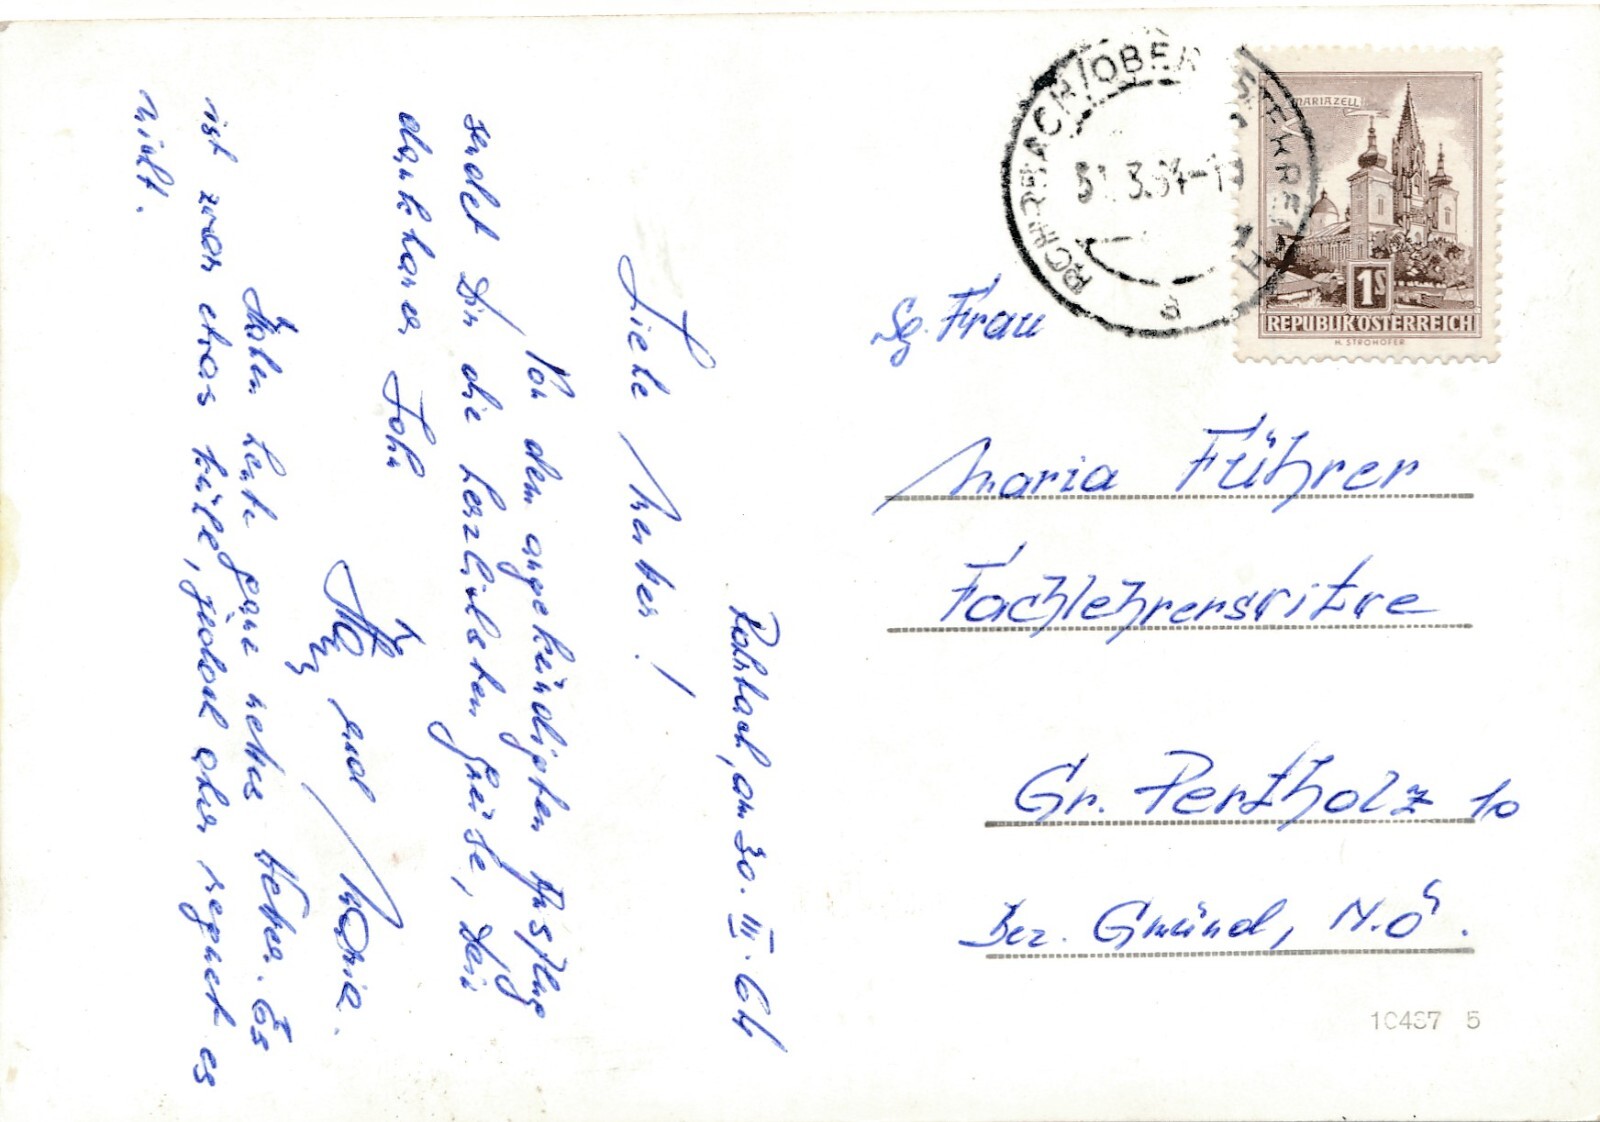 Rohrbach, am 30. III. 64
Liebe Mutter!
Von dem angekündigten Ausflug
sendet Dir die herzlichsten Grüße, Dein
dankbarer Sohn
und Maria.
Haben heute ganz nettes Wetter. Es
ist zwar etwas kühl, jedoch aber regnet es
nicht.
ROHRBACH/OBERÖSTERREICH
31.3.64-1
a
MARIAZELL
1S
REPUBLIK ÖSTERREICH
H. STROHOFER
Sg. Frau
Maria Führer
Fachlehrerswitwe
Gr. Pertholz 10
Bez. Gmünd, N.Ö.
10467 5